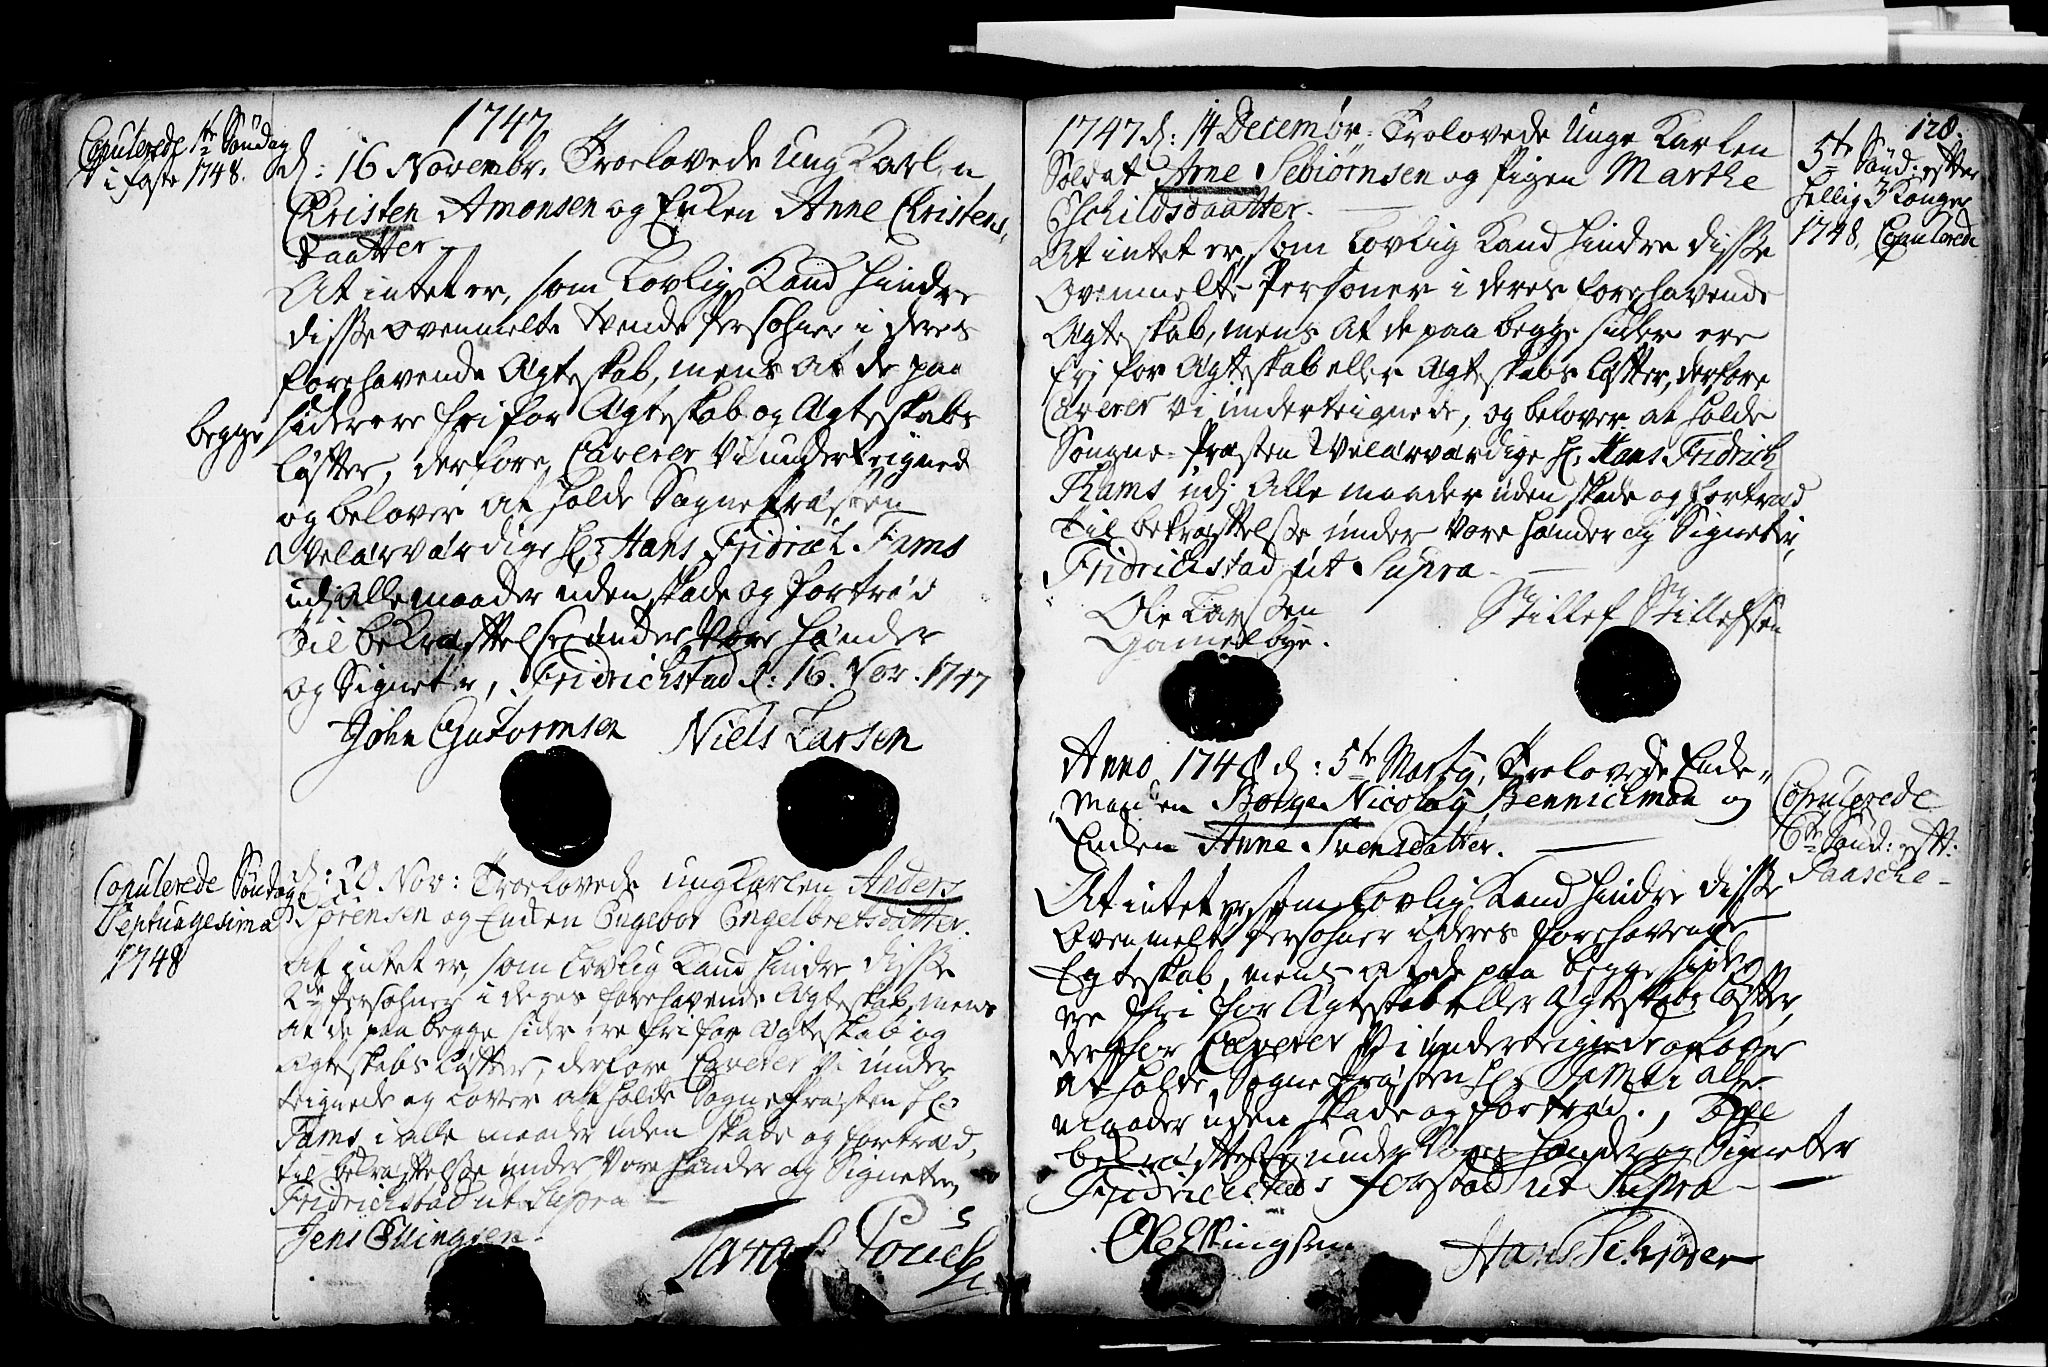 1747
Copulerede 1te Søndag
i faste 1748.
d: 16 Novembr. Troelovede Ung Karlen
Christen Amonsen og Enken Anne Christens
daatter
At intet er, som Lovlig Kand hindre
disse ovenmelte tvende Persohner i deres
forehavende Ægteskab, mens at de paa
begge sider ere fri for Ægteskab og Ægteskabs
Løfter, derfore Caverer Vi underteignede
og belover at holde Sognepræsten
Velærværdige Hr Hans Fridrich Fams
udj alle maader uden skade og fortræd
til bekræftelse under Vore hænder
og Signeter, Fridrichstad d: 16. Nov. 1747
John Gutormsen Niels Larsen
Copulerede Søndag
Septuagesima
1748
d: 20 Nov: Troelovede ungkarlen Anders
Sørensen og Enken Engebor Engelbretsdatter.
At intet er, som Lovlig Kand hindre disse
2de Persohner i deres forehavende Ægteskab, mens
at de paa begge sider ere fri for Ægteskab og
Ægteskabs Løfter, derfore Caverer Vi under
teignede og Lover at holde Sognepræsten Hr
Fams, i alle maader uden skade og fortræd,
til bekræftelse under Vore hænder og Signetter,
Fridrichstad ut Supra
Jens Ellingsen.
128.
1747 d: 14 Decembr: Trolovede Unge Karlen
Soldat Arne Sebiørnsen og Pigen Marthe
Eschildsdaatter.
5te Sønd: efter
Hellig 3 Konger
1748, Copulerede
At intet er, som Lovlig Kand hindre disse
Ovenmelte Personer i deres forehavende
Ægteskab, mens at de paa begge sider ere
frj for Ægteskab eller Ægteskabs Løfter, derfore
Caverer Vi underteignede, og belover at holde
Sogne-Præsten Velærværdige Hr. Hans Fridrich
Fams udj Alle maader uden skade og fortræd
til bekræftelse under Vore hænder og Signeter,
Fridrichstad ut Supra
Ole Larssen
Gameløye.
Anno 1748 d: 5te Martij, Trolovede Enke-
manden Børge Nicolay Bennichman og
Enken Anne Svensdatter.
Copulerede
6te Sønd: eft:
Paasche
At intet er, som Lovlig Kand hindre disse
Ovenmelte Persohner i deres forehavende
Egteskab, mens at de paa begge sider
ere fri for Ægteskab eller Ægteskabs Løfter,
derfor Caverer Vi underteignede og Lover
at holde Sognepræsten Hr Fams i alle
maader uden skade og fortræd.,
bekræftelse under Vore hænder og Signeter
Fridrichstads forstad ut Supra
Ole Ellingsen Hans Schrøder